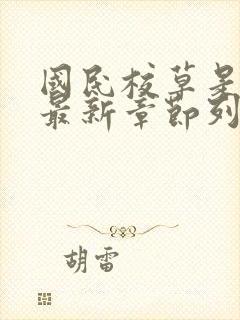 國民校草是
最新章節列
胡雷